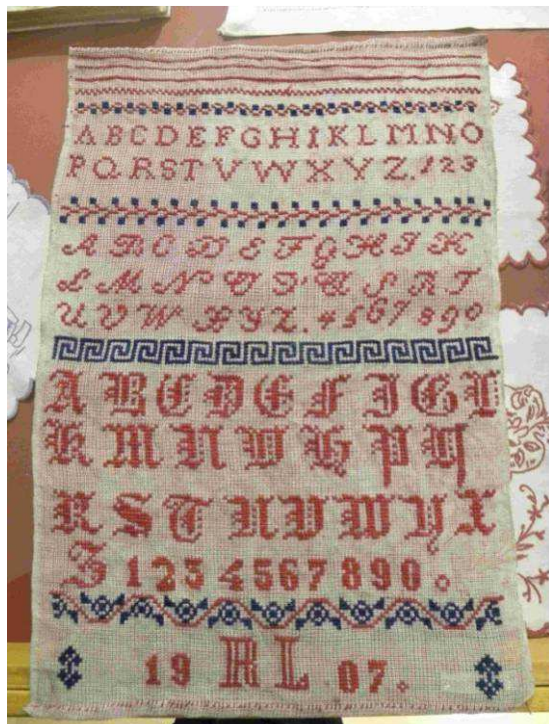 A B C D E F G H I K L M N O
P Q R S T V W X Y Z . 1 2 3
A B C D E F G H I K
L M N O P Q S R T
U V W X Y Z . 4 5 6 7 8 9 0
A B C D E F I G L
K M N O H P Q
R S T U V W Y X
Z 1 2 3 4 5 6 7 8 9 0 .
19 RL .07.